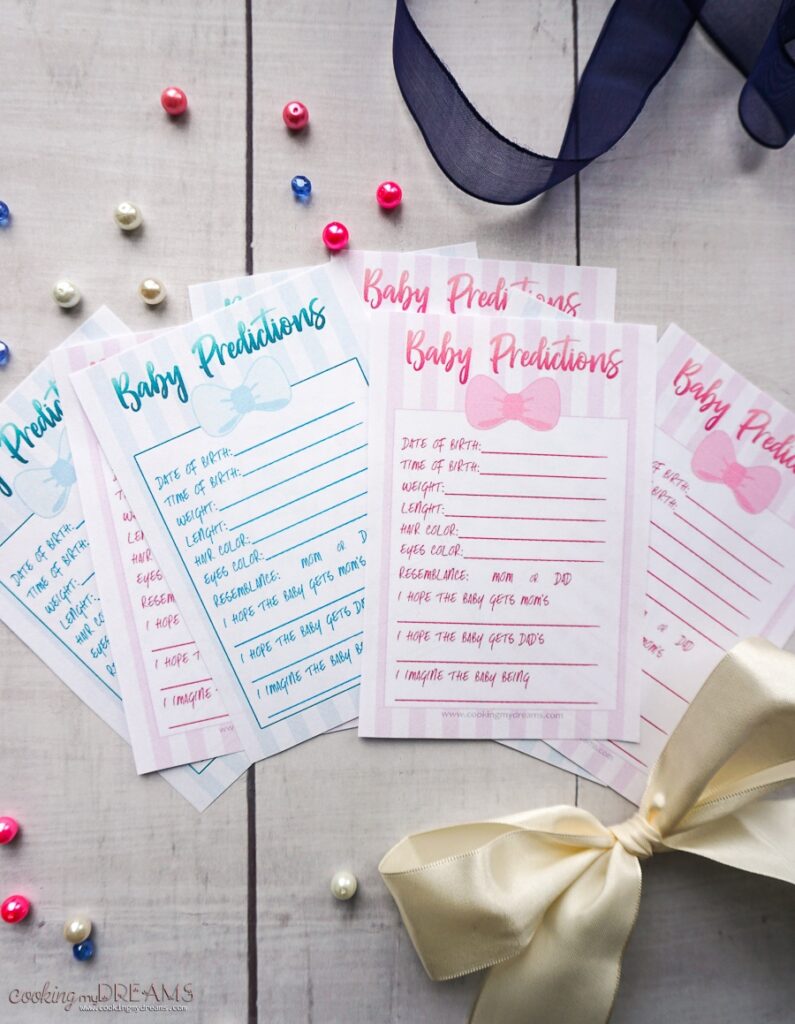 Baby Predictions
Baby Predictions
DATE OF BIRTH:
TIME OF BIRTH:
WEIGHT:
LENGHT:
HAIR COLOR:
EYES COLOR:
RESEMBLANCE: MOM OR DAD
I HOPE THE BABY GETS MOM'S
I HOPE THE BABY GETS DAD'S
I IMAGINE THE BABY BEING
www.cookingmydreams.com
Baby Predictions
DATE OF BIRTH:
TIME OF BIRTH:
WEIGHT:
LENGHT:
HAIR COLOR:
EYES COLOR:
RESEMBLANCE: MOM OR D
I HOPE THE BABY GETS MOM'S
I HOPE THE BABY GETS DA
I IMAGINE THE BABY B
DATE OF BIRTH:
TIME OF BIRTH:
WEIGHT:
LENGHT:
HAIR COLOR:
EYES
RE
D
T
WEI
LENG
HAIR
EYES
RESEM
I HOPE
I HOPE THE
I IMAGINE
Baby Predicti
BIRTH:
BIRTH:
OR DAD
MOM'S
cooking my DREAMS
www.cookingmydreams.com